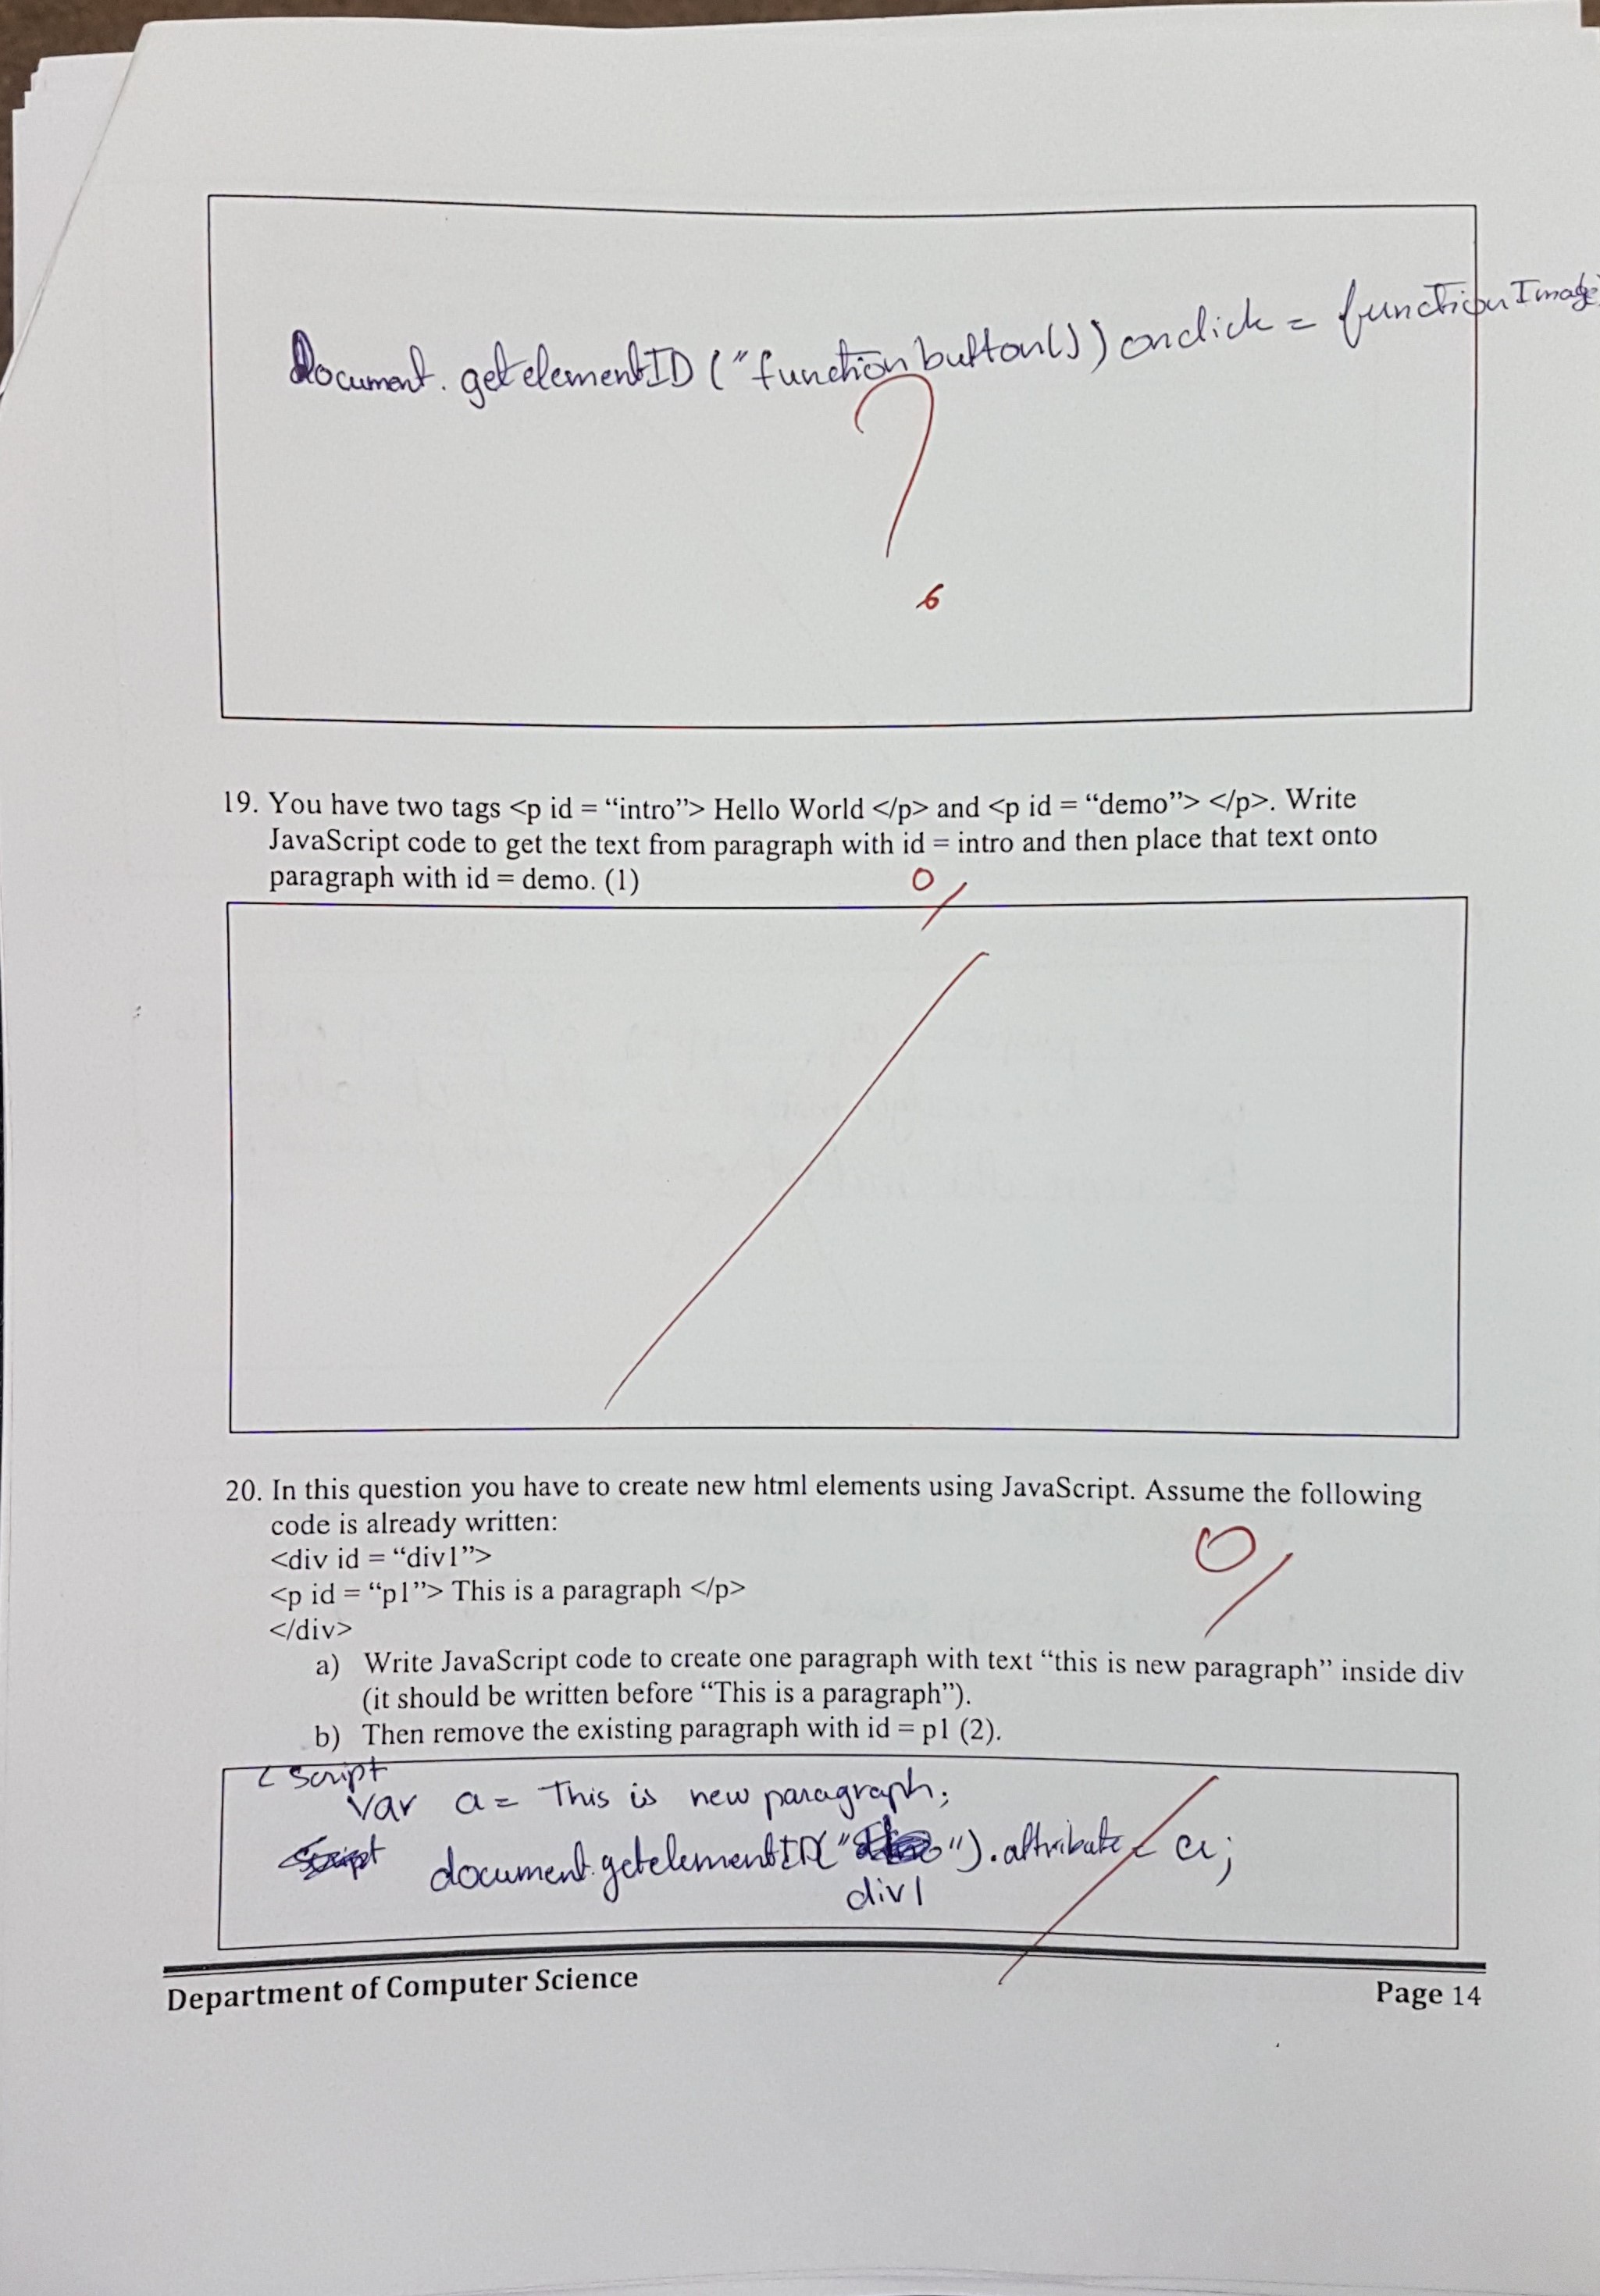 Document.getelementID ("functionbutton()) onclick = functionImage
6
19. You have two tags <p id = “intro”> Hello World </p> and <p id = “demo”> </p>. Write
JavaScript code to get the text from paragraph with id = intro and then place that text onto
paragraph with id = demo. (1)
0
20. In this question you have to create new html elements using JavaScript. Assume the following
code is already written:
<div id = “div1”>
<p id = “p1”> This is a paragraph </p>
</div>
0
a) Write JavaScript code to create one paragraph with text “this is new paragraph” inside div
(it should be written before “This is a paragraph”).
b) Then remove the existing paragraph with id = p1 (2).
< Script
Var a = This is new paragraph;
document.getelementID(" ").attribute = a;
div1
Department of Computer Science
Page 14